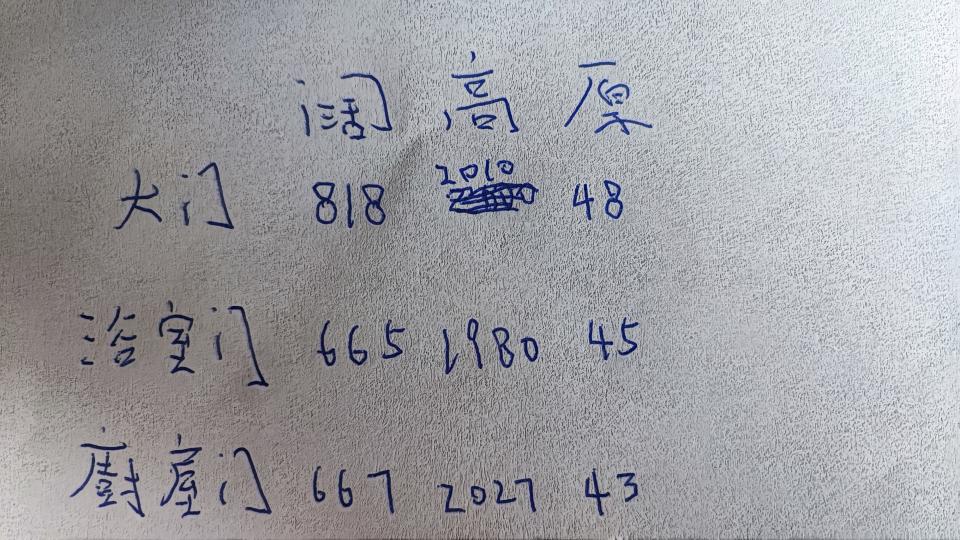 阔 高 厚
大门 818 2010 48
浴室门 665 1980 45
廚室门 667 2027 43